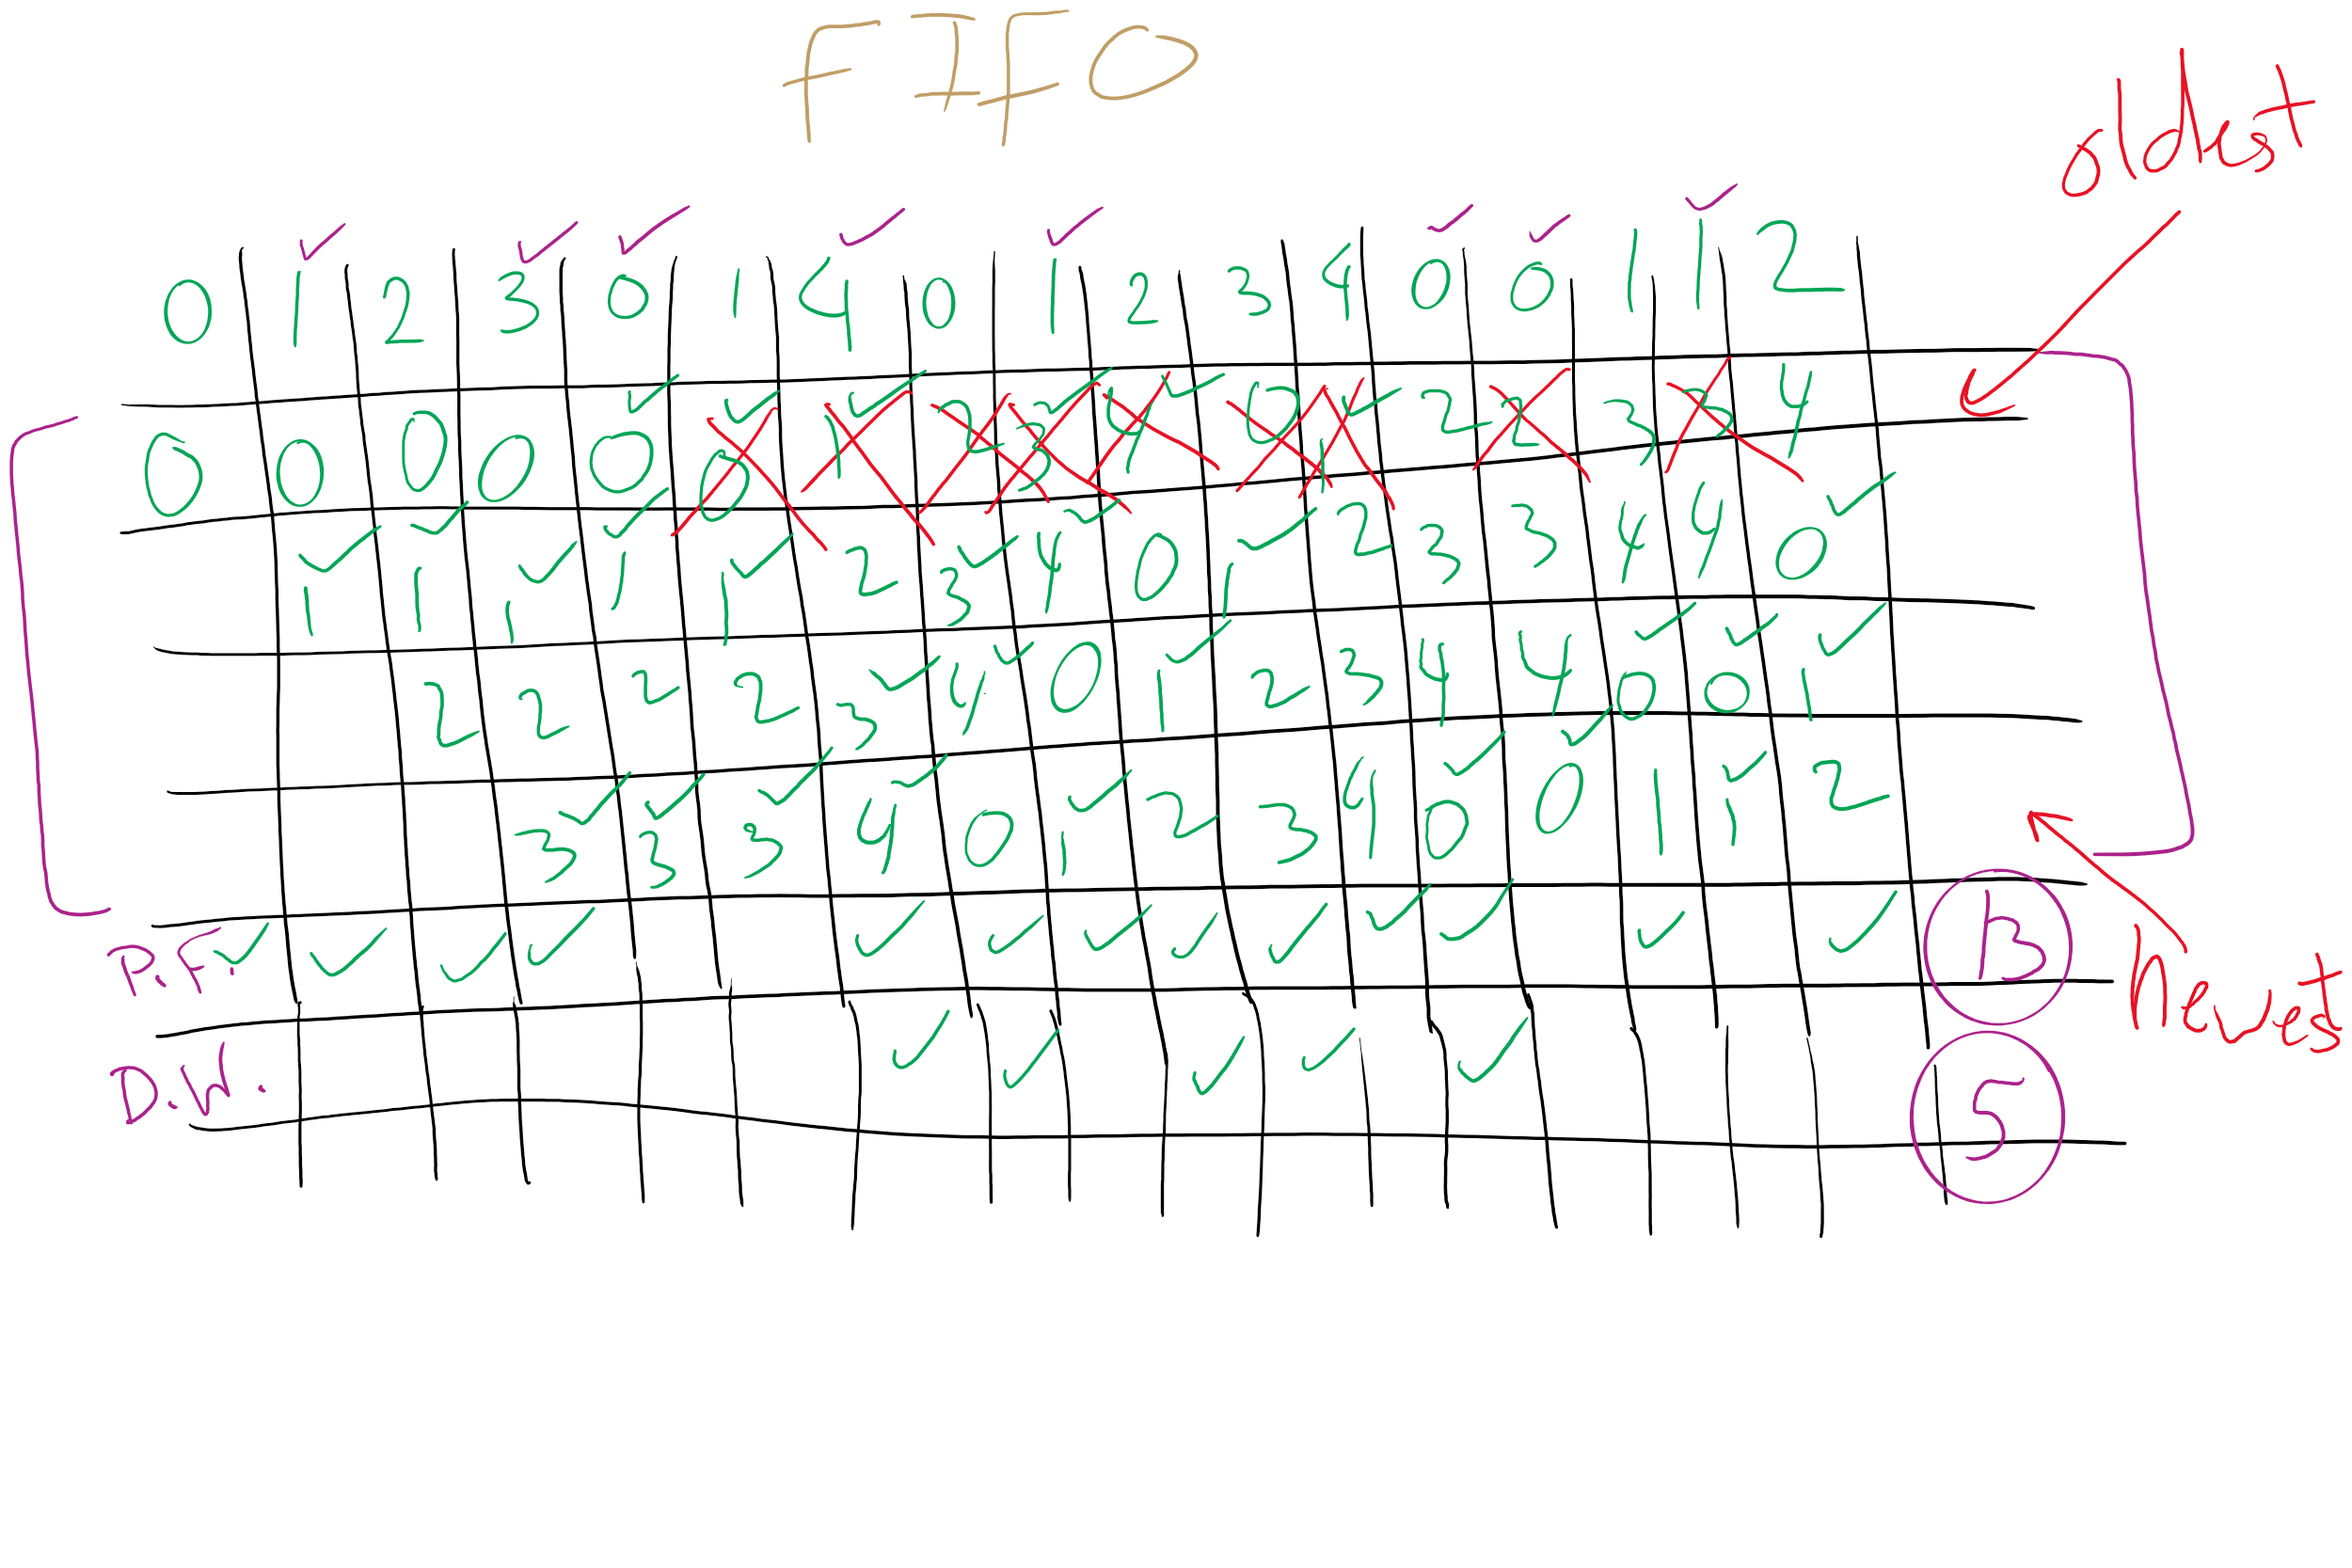 FIFO
oldest
0 1 2 3 0 1 4 0 1 2 3 4 0 0 1 1 2
0 0 0 0 0 0 1 2 3 4 0 1 2 2 3 3 4
1 1 1 1 1 2 3 4 0 1 2 3 3 4 4 0
2 2 2 2 3 4 0 1 2 3 4 4 0 0 1
3 3 3 4 0 1 2 3 4 0 0 1 1 2
P.F. 13
newest
D.W. 5